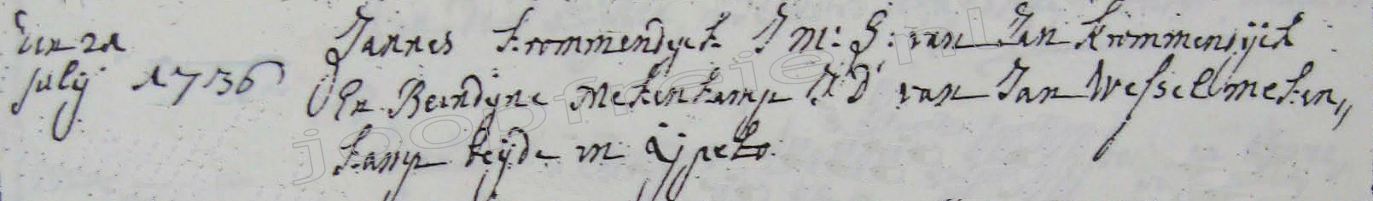 Den 21
july 1736
Jannes Krommendyck J M: S: van Jan Krommendijck
En Berndyne Mekenkamp J D van Jan Wessel meken„
kamp beijde in